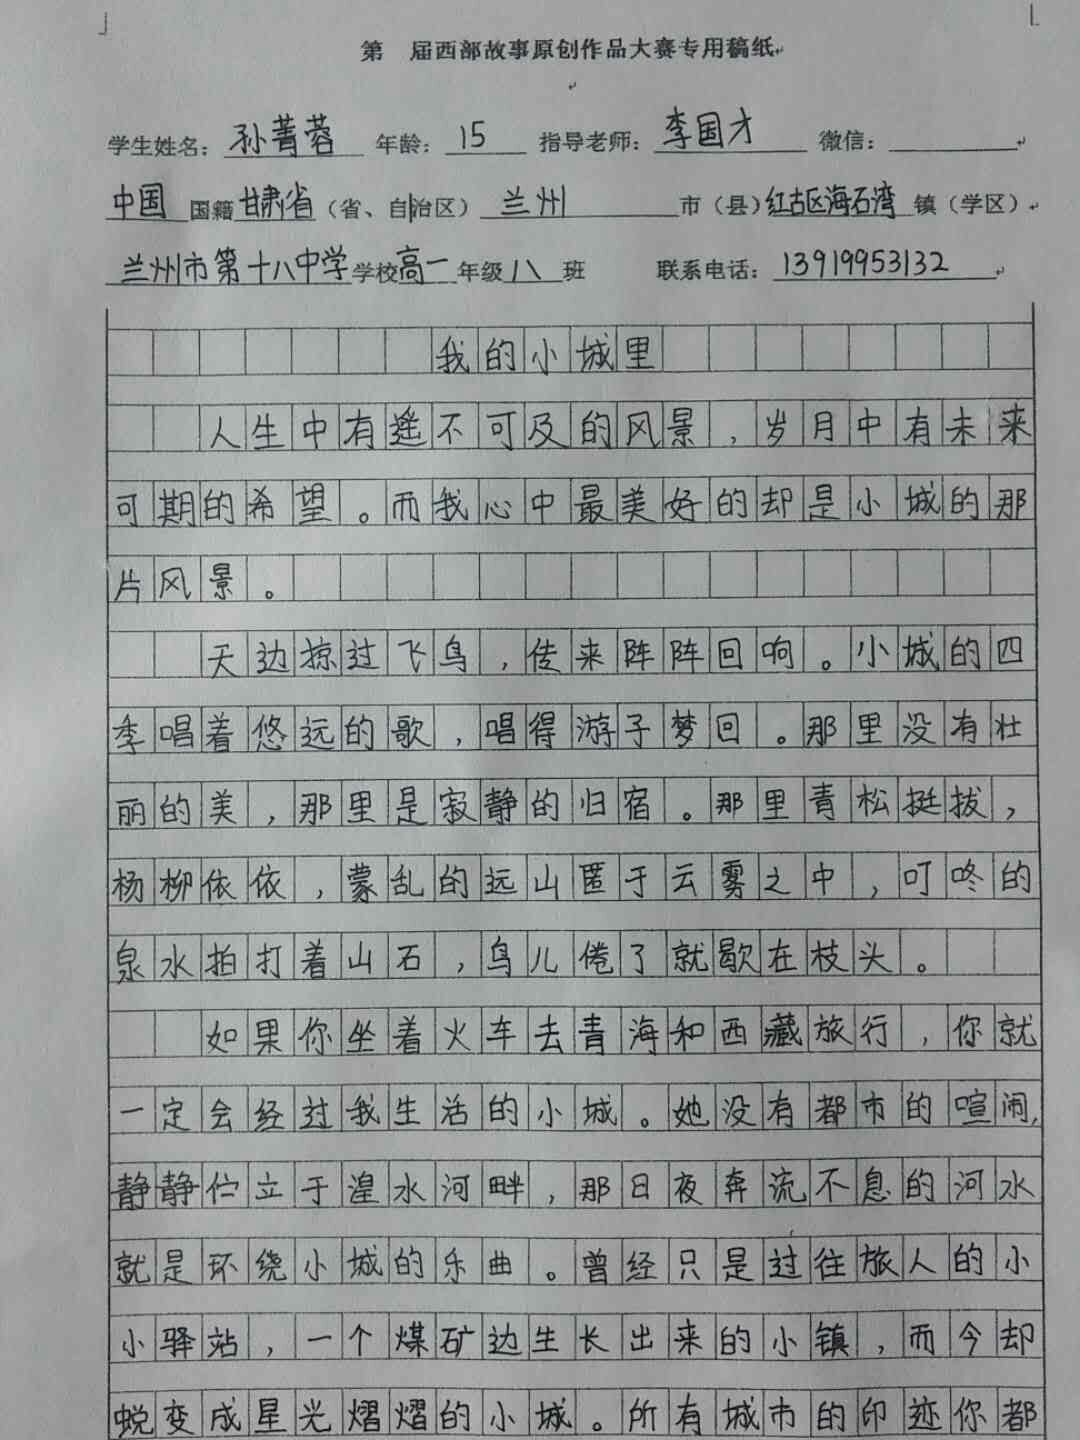 第 届西部故事原创作品大赛专用稿纸
学生姓名：孙菁蓉 年龄：15 指导老师：李国才 微信：
中国 国籍 甘肃省（省、自治区） 兰州 市（县）红古区海石湾 镇（学区）
兰州市第十八中学 学校 高一 年级 八 班 联系电话：13919953132
我的小城里
人生中有遥不可及的风景，岁月中有未来
可期的希望。而我心中最美好的却是小城的那
片风景。
天边掠过飞鸟，传来阵阵回响。小城的四
季唱着悠远的歌，唱得游子梦回。那里没有壮
丽的美，那里是寂静的归宿。那里青松挺拔，
杨柳依依，蒙乱的远山匿于云雾之中，叮咚的
泉水拍打着山石，鸟儿倦了就歇在枝头。
如果你坐着火车去青海和西藏旅行，你就
一定会经过我生活的小城。她没有都市的喧闹，
静静伫立于湟水河畔，那日夜奔流不息的河水
就是环绕小城的乐曲。曾经只是过往旅人的小
小驿站，一个煤矿边生长出来的小镇，而今却
蜕变成星光熠熠的小城。所有城市的印迹你都